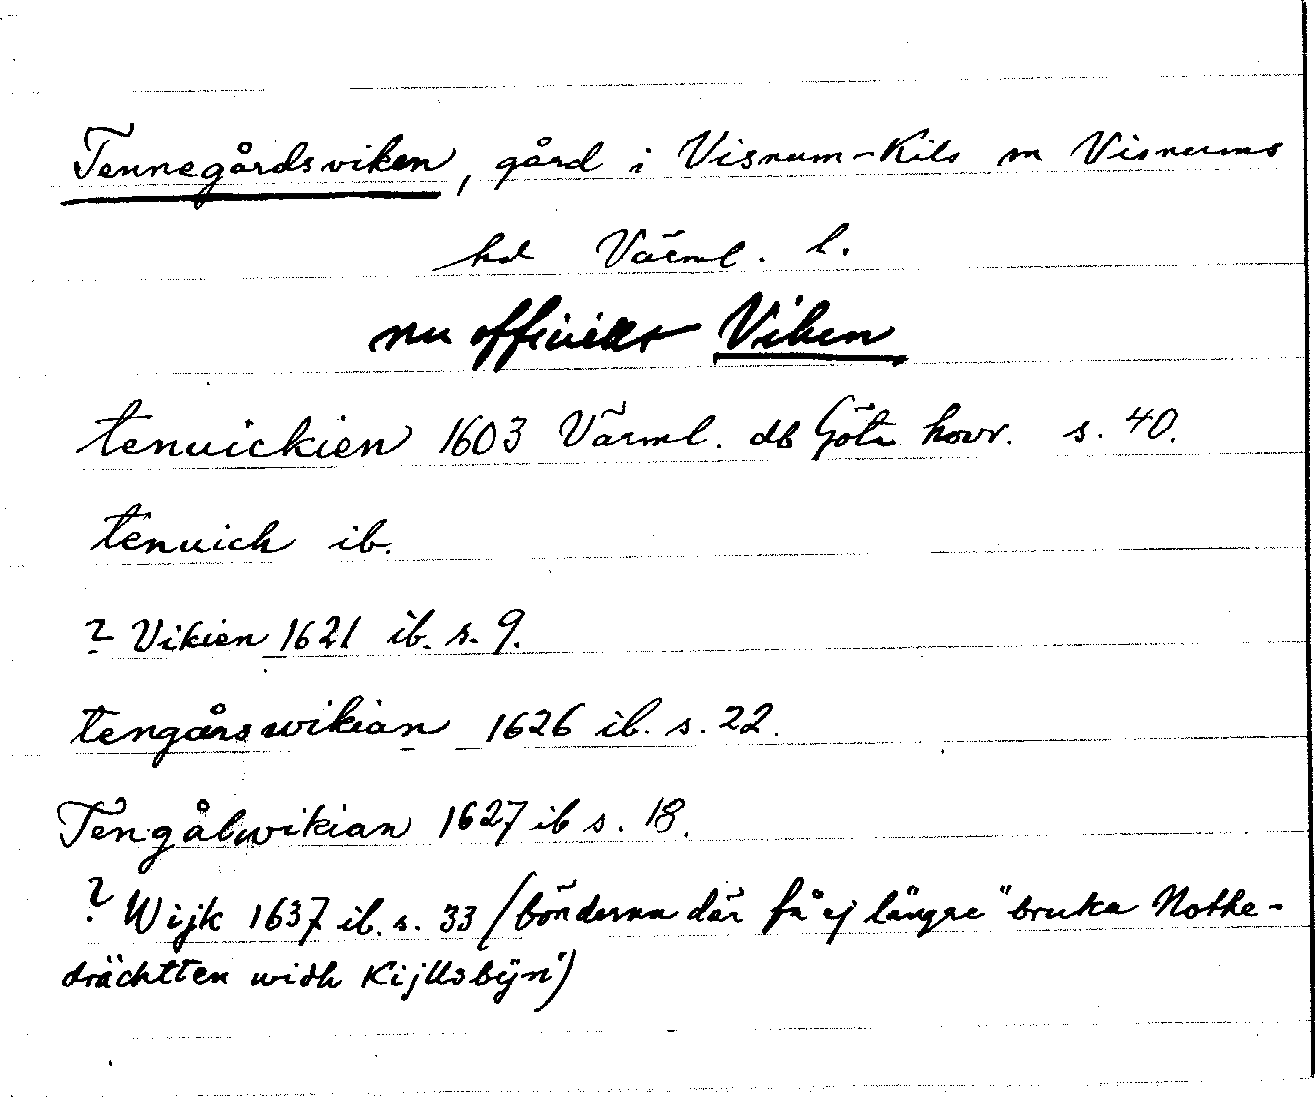 Tennegårdsviken, gård i Visnum-Kils sn Visnums
hd Värml. l.
nu officiellt Viken
tenuickien 1603 Värml. db Göta hovr. s. 40.
tenuich ib.
? Vikien 1621 ib. s. 9.
tengårswikian 1626 ib. s. 22.
Tengålwikian 1627 ib s. 18.
? Wijk 1637 ib. s. 33 (bönderna där få ej längre "bruka Nothe-
drächtten widh Kijllsbÿn")